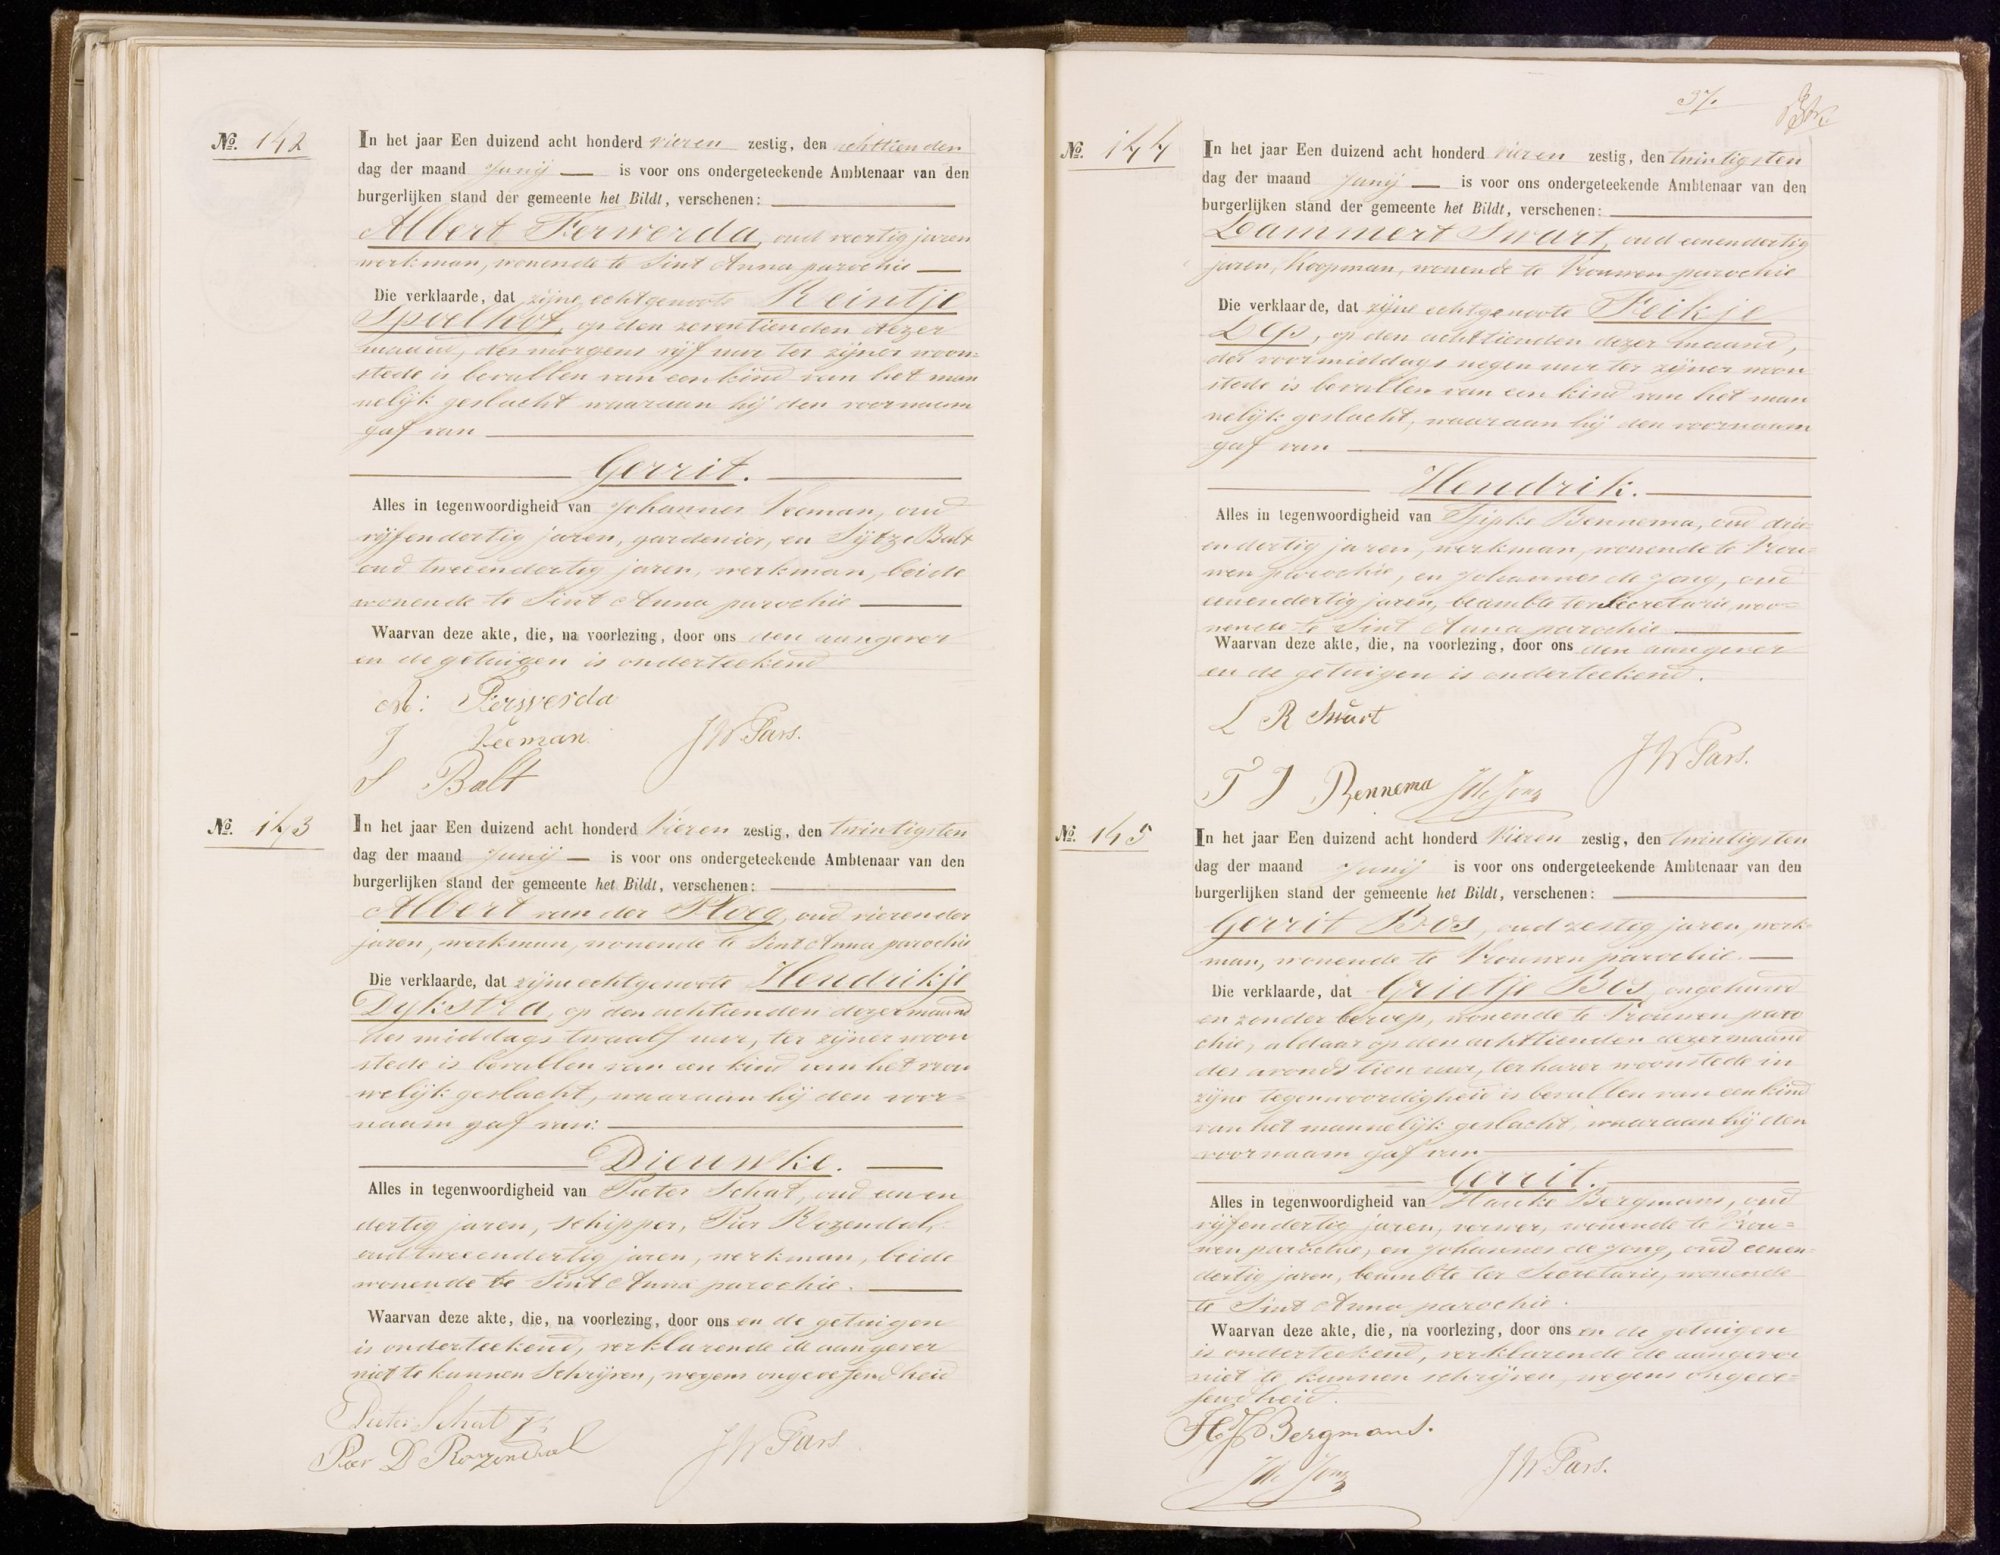 No. 142
In het jaar Een duizend acht honderd vieren zestig, den achttienden
dag der maand Junij — is voor ons ondergeteekende Ambtenaar van den
burgerlijken stand der gemeente het Bildt, verschenen:
Albert Ferwerda, oud veertig jaren
werkman, wonende te Sint Anna parochie
Die verklaarde, dat zijne echtgenoote Reintje
Spoelhof, op den zeventienden dezer
maand, des morgens vijf uur ter zijner woon=
stede is bevallen van een kind van het man
nelijk geslacht waaraan hij den voornaam
gaf van
Gerrit.
Alles in tegenwoordigheid van Johannes Zeeman, oud
vijfendertig jaren, gardenier, en Sijtze Balt
oud tweeendertig jaren, werkman, beide
wonende te Sint Anna parochie
Waarvan deze akte, die, na voorlezing, door ons den aangever
en de getuigen is onderteekend
A: Ferwerda
J Zeeman JW Fars.
S Balt
No. 143
In het jaar Een duizend acht honderd Vieren zestig, den twintigsten
dag der maand Junij — is voor ons ondergeteekende Ambtenaar van den
burgerlijken stand der gemeente het Bildt, verschenen:
Albert van der Ploeg, oud
jaren, werkman, wonende te Sint Anna parochie
Die verklaarde, dat zijne echtgenoote Hendrikje
Dykstra, op den achtienden dezer maand
des middags twaalf uur, ter zijner woon
stede is bevallen van een kind van het vrou
welijk geslacht, waaraan hij den voor=
naam gaf van:
Dieuwke.
Alles in tegenwoordigheid van Pieter Schat, oud eenen
dertig jaren, schipper, Pier Rozendal,
oud tweeendertig jaren, werkman, beide
wonende te Sint Anna parochie.
Waarvan deze akte, die, na voorlezing, door ons en de getuigen
is onderteekend, verklarende de aangever
niet te kunnen Schrijven, wegens ongeoefendheid
Pieter Schat
Pier D Rozendal JW Fars.
37.
No. 144
In het jaar Een duizend acht honderd vieren zestig, den twintigsten
dag der maand Junij — is voor ons ondergeteekende Ambtenaar van den
burgerlijken stand der gemeente het Bildt, verschenen:
Lammert Swart, oud eenendertig
jaren, Koopman, wonende te Vrouwen parochie
Die verklaarde, dat zijne echtgenoote Feikje
Lep, op den achttienden dezer maand,
des voormiddags negen uur ter zijner woon
stede is bevallen van een kind van het man
nelijk geslacht, waaraan hij den voornaam
gaf van
Hendrik.
Alles in tegenwoordigheid van Tjipke Bennema, oud drie=
en dertig jaren, werkman, wonende te Vrou=
wen parochie, en Johannes de Jong, oud
eenendertig jaren, beambte ter Secretarie, woo=
nende te Sint Anna parochie
Waarvan deze akte, die, na voorlezing, door ons den aangever
en de getuigen is onderteekend.
L R Swart
JW Fars.
T J Bennema JdeJong
No. 145
In het jaar Een duizend acht honderd Vieren zestig, den twintigsten
dag der maand Junij is voor ons ondergeteekende Ambtenaar van den
burgerlijken stand der gemeente het Bildt, verschenen:
Gerrit Bos, oud zestig jaren, werk=
man, wonende te Vrouwen parochie.
Die verklaarde, dat Grietje Bos, ongehuwd
en zonder beroep, wonende te Vrouwen paro
chie, aldaar op den achttienden dezer maand
des avonds tien uur, ter harer woonstede in
zijne tegenwoordigheid is bevallen van een kind
van het mannelijk geslacht, waaraan hij den
voornaam gaf van
Gerrit.
Alles in tegenwoordigheid van Hauke Bergmans, oud
vijfendertig jaren, verwer, wonende te Vrou=
wen parochie, en Johannes de Jong, oud eenen=
dertig jaren, beambte ter Secretarie, wonende
te Sint Anna parochie.
Waarvan deze akte, die, na voorlezing, door ons en de getuigen
is onderteekend, verklarende de aangever
niet te kunnen schrijven, wegens ongeoe=
fendheid.
H J Bergmans.
Jde Jong JW Fars.